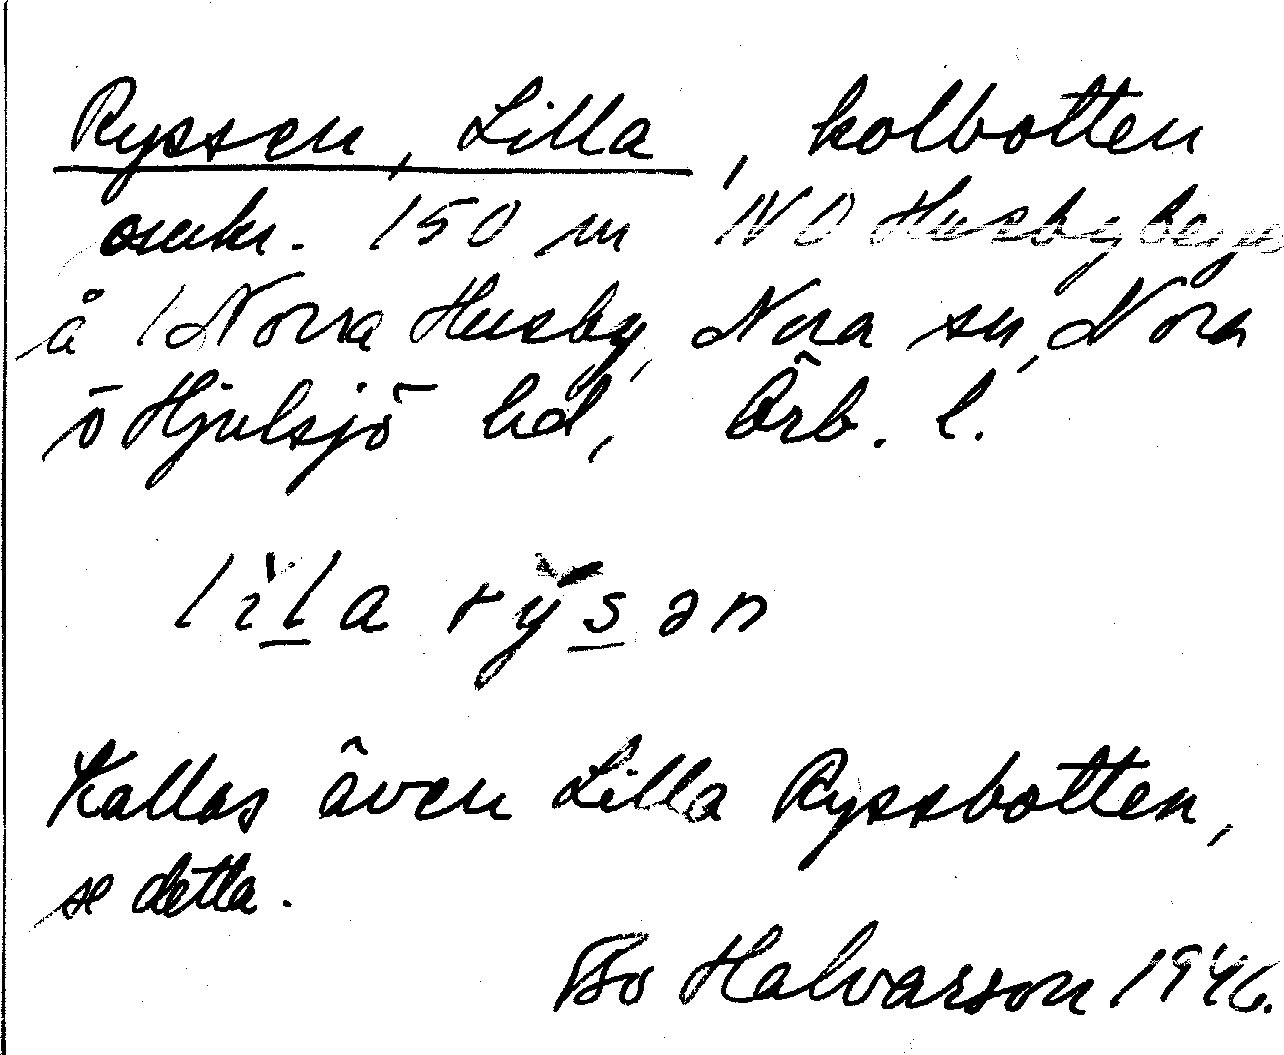 Ryssen, Lilla, kolbotten
omkr. 150 m NO Husbyberg
å 1 Norra Husby, Nora sn, Nora
o Hjulsjö hd, Örb. l.
lìla rýsən
Kallas även Lilla Ryssbotten,
se detta.
Bo Halvarson 1946.